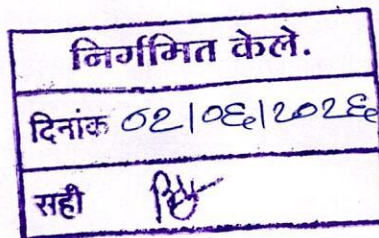 निर्गमित केले.
दिनांक ०२/०६/२०२६
सही